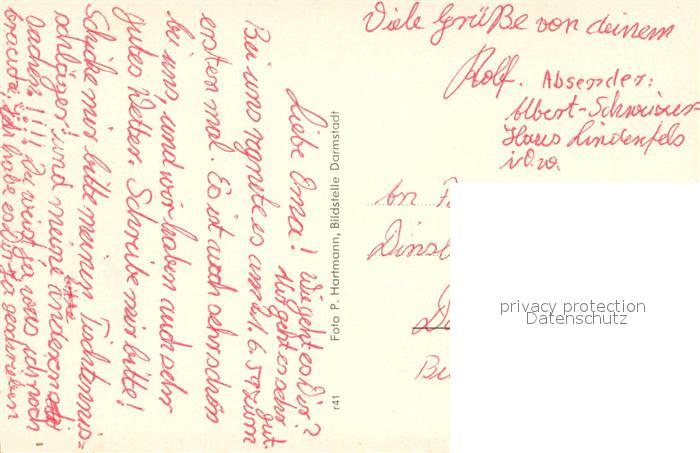 Liebe Oma! Wie geht es Dir?
Mir geht es sehr gut.
Bei uns regnete es am 21. 6. 59 zum
ersten mal. Es ist auch sehr schön
bei uns, und wir haben auch sehr
gutes Wetter. Schreibe mir bitte!
Schicke mir bitte meinen Tischtennis=
schläger und meine anderen
bitte
Sachen!!!! Du weist ja was ich noch
brauche. Ich habe es Dir ja geschrieben
Viele Grüße von deinem
Rolf. Absender:
Albert-Schweitzer
Haus Lindenfels
i. O. w.
Foto P. Hartmann, Bildstelle Darmstadt
r41
an
Dinsl
privacy protection
Datenschutz